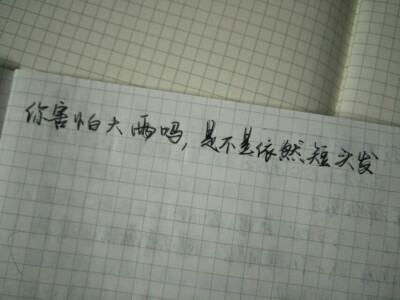 你害怕大雨吗,是不是依然短头发